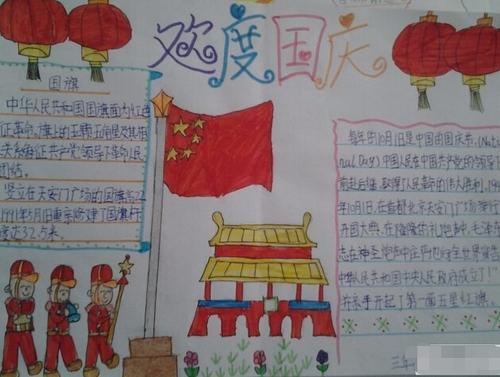 欢度国庆
国旗
中华人民共和国国旗面为红色
征革命,旗上的五颗五角星及其相
关系象征共产党领导下革命人民
团结。
竖立在天安门广场的国旗
1991年5月1日重京修建了国旗杆
高达32.5米。
每年的10月1日是中国的国庆节,(Nati
nal Day)中国人民在中国共产党的领导
前赴后继,取得了人民革命的伟大胜利,19
年10月1日,在首都北京天安门广场举行
开国大典,在隆隆的礼炮声中,毛泽东
志在城楼
中华人民共和国中央人民政府成立了!
并亲手升起了第一面五星红旗。
三年